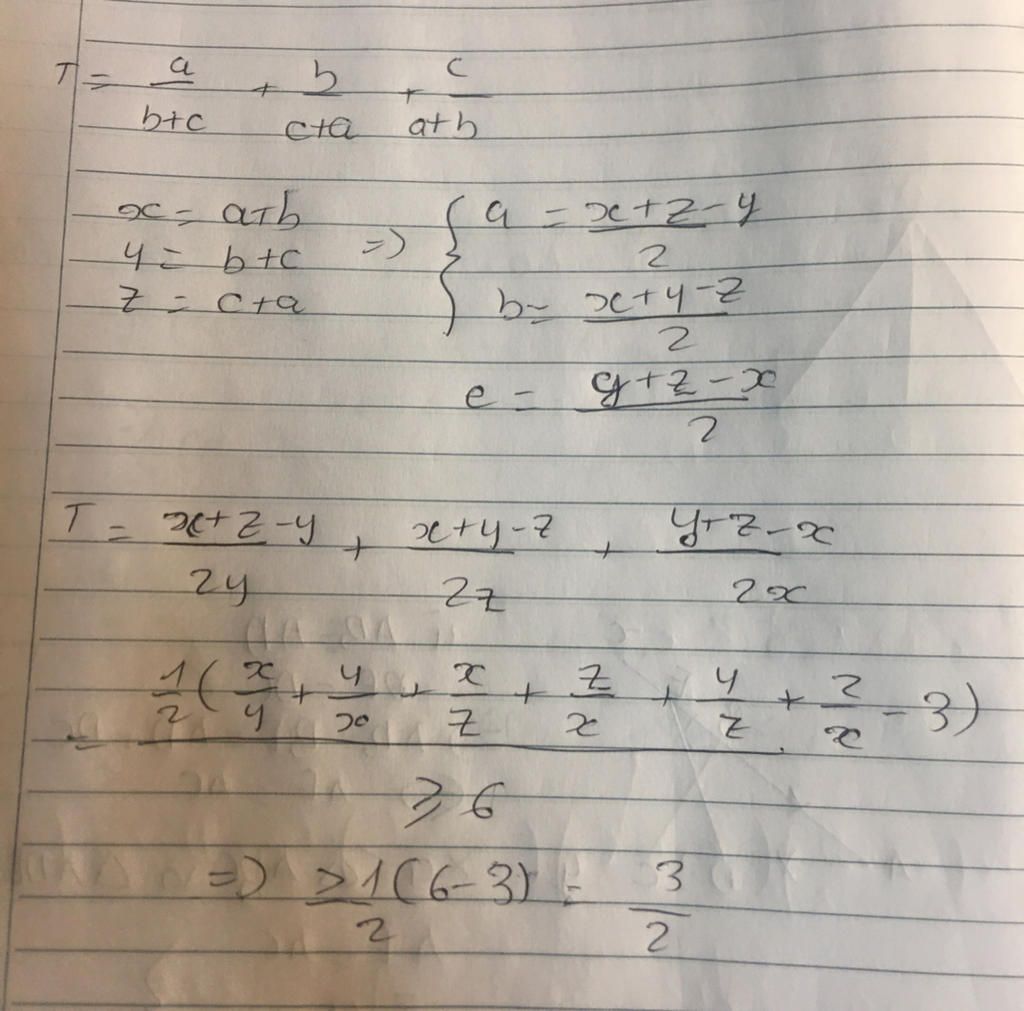 T = a/(b+c) + b/(c+a) + c/(a+b)
x = a+b
y = b+c => { a = (x+z-y)/2
z = c+a b = (x+y-z)/2
c = (y+z-x)/2
T = (x+z-y)/2y + (x+y-z)/2z + (y+z-x)/2x
= 1/2 ( x/y + y/x + x/z + z/x + y/z + z/x - 3)
⩾ 6
=> ≥ 1/2 (6-3) = 3/2